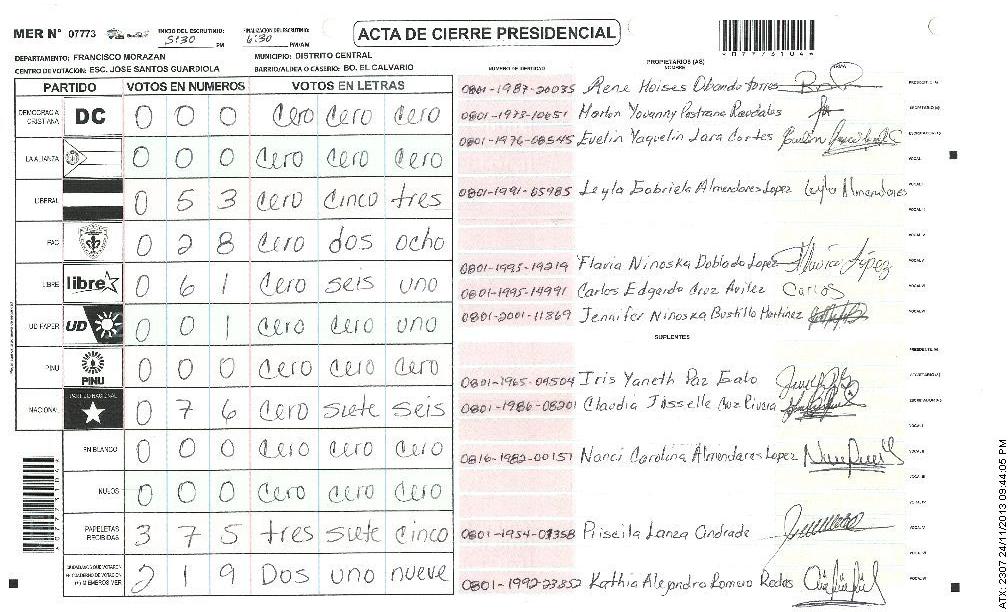 MER N° 07773
INICIO DEL ESCRUTINIO: 5:30 PM
FINALIZACION DEL ESCRUTINIO: 6:30 PM/AM
ACTA DE CIERRE PRESIDENCIAL
DEPARTAMENTO: FRANCISCO MORAZAN
MUNICIPIO: DISTRITO CENTRAL
CENTRO DE VOTACION: ESC. JOSE SANTOS GUARDIOLA
BARRIO/ALDEA O CASERIO: BO. EL CALVARIO
PARTIDO VOTOS EN NUMEROS VOTOS EN LETRAS
DEMOCRACIA CRISTIANA DC 0 0 0 Cero Cero Cero
LA ALIANZA 0 0 0 Cero Cero Cero
LIBERAL 0 5 3 Cero Cinco tres
PAC 0 2 8 Cero dos ocho
LIBRE libre 0 6 1 Cero seis uno
UD FAPER UD 0 0 1 Cero Cero uno
PINU PINU 0 0 0 Cero Cero Cero
NACIONAL PARTIDO NACIONAL 0 7 6 Cero siete seis
EN BLANCO 0 0 0 Cero Cero Cero
NULOS 0 0 0 Cero Cero Cero
PAPELETAS RECIBIDAS 3 7 5 tres siete Cinco
2 1 9 Dos uno nueve
NUMERO DE IDENTIDAD
PROPIETARIOS (AS)
NOMBRE
0801-1987-20035 Rene Moises Obando torres
0801-1973-10651
0801-1976-08545 Evelin Yaquelin Lara Cortes
0801-1991-05985 Leyla Gabriela Almendares Lopez Leyla Almendares
0801-1995-19219 Flavia Ninoska Doblado Lopez
0801-1995-14991 Carlos Edgardo Cruz Avilez Carlos
0801-2001-11869 Jennifer Ninoska Bustillo Martinez
SUPLENTES
0801-1965-04504 Iris Yaneth Paz Galo
0801-1986-08201 Claudia Josselle Cruz Rivera
0816-1982-00151 Nanci Carolina Almendares Lopez
Priscila Lanza Andrade
0801-1992-23852 Kathia Alejandra Romero Rodas
ATX 2307 24/11/2013 09:44:05 PM